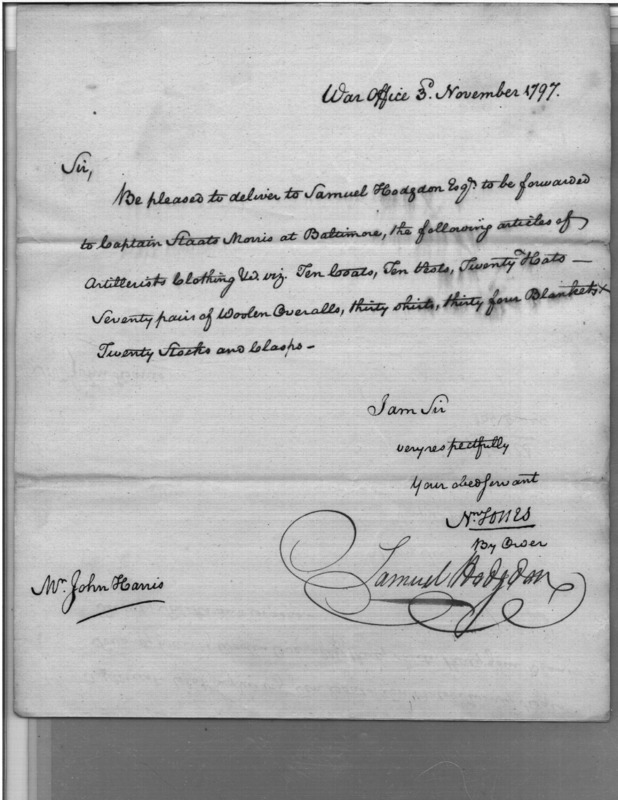 War Office 3d. November 1797.
Sir,
Be pleased to deliver to Samuel Hodgdon Esqr. to be forwarded
to Captain Staats Morris at Baltimore, the following articles of
Artillerists Clothing Viz. Ten Coats, Ten Vests, Twenty Hats —
Seventy pairs of Woolen Overalls, thirty shirts, thirty four Blankets &
Twenty Stocks and Clasps —
I am Sir
very respectfully
Your obed Servant
Nn. Jones
By Order
Samuel Hodgdon
Mr. John Harris